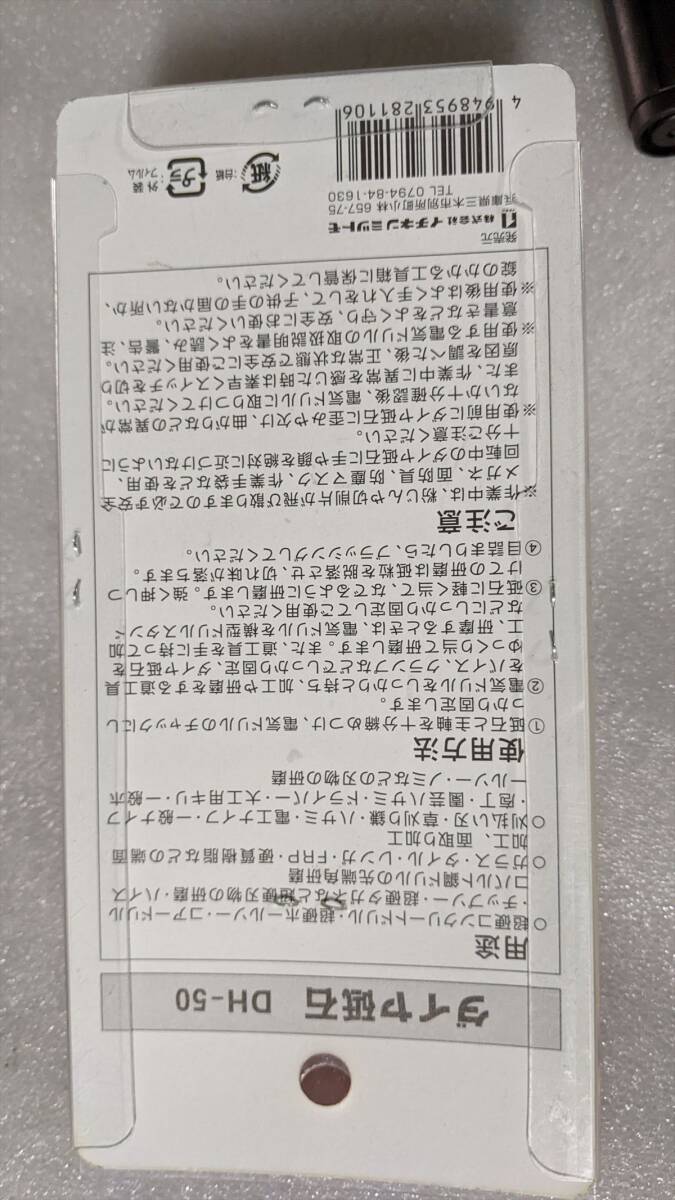 ダイヤ砥石 DH-50
用途
○超硬コンクリートドリル・超硬ホールソー・コアードリル
・チップソー・超硬タガネなど超硬刃物の研磨・ハイス
コバルト鋼ドリルの先端角研磨
○ガラス・タイル・レンガ・FRP・硬質樹脂などの端面
加工、面取加工
○刈払い刃・草刈り鎌・ハサミ・電工ナイフ・一般ナイフ
・庖丁・園芸ハサミ・ドライバー・大工用キリ・一般ホ
ールソー・ノミなどの刃物の研磨
使用方法
①砥石と主軸を十分締めつけ、電気ドリルのチャックにし
っかり固定します。
②電気ドリルをしっかりと持ち、加工や研磨をする道工具
をバイス、クランプなどでしっかり固定、ダイヤ砥石を
ゆっくり当て研磨します。また、道工具を手に持って加
工、研磨するときは、電気ドリルを横型ドリルスタンド
などにしっかり固定してご使用ください。
③砥石に軽く当て、なでるように研磨します。強く押しつ
けての研磨は砥粒を脱落させ、切れ味が落ちます。
④目詰まりしたら、ブラッシングしてください。
ご注意
※作業中は、粉じんや切削片が飛び散りますので必ず安全
メガネ、面防具、防塵マスク、作業手袋などを使用、
回転中のダイヤ砥石に手や顔を絶対に近づけないように
十分ご注意ください。
※使用前にダイヤ砥石に歪みや欠け、曲がりなどの異常が
ないか十分確認後、電気ドリルに取りつけてください。
また、作業中に異常を感じた時は素早くスイッチを切り
原因を調べた後、正常な状態で安全にご使用ください。
※使用する電気ドリルの取扱説明書をよく読み、警告、注
意書きなどをよく守り、安全にお使いください。
※使用後はよく手入れをして、子供の手の届かない所か、
錠のかかる工具箱に保管してください。
発売元
株式会社 イチネンミツトモ
兵庫県三木市別所町小林 657-75
TEL 0794-84-1630
紙
:台紙
プラ
外装
:フィルム
4 948953 281106